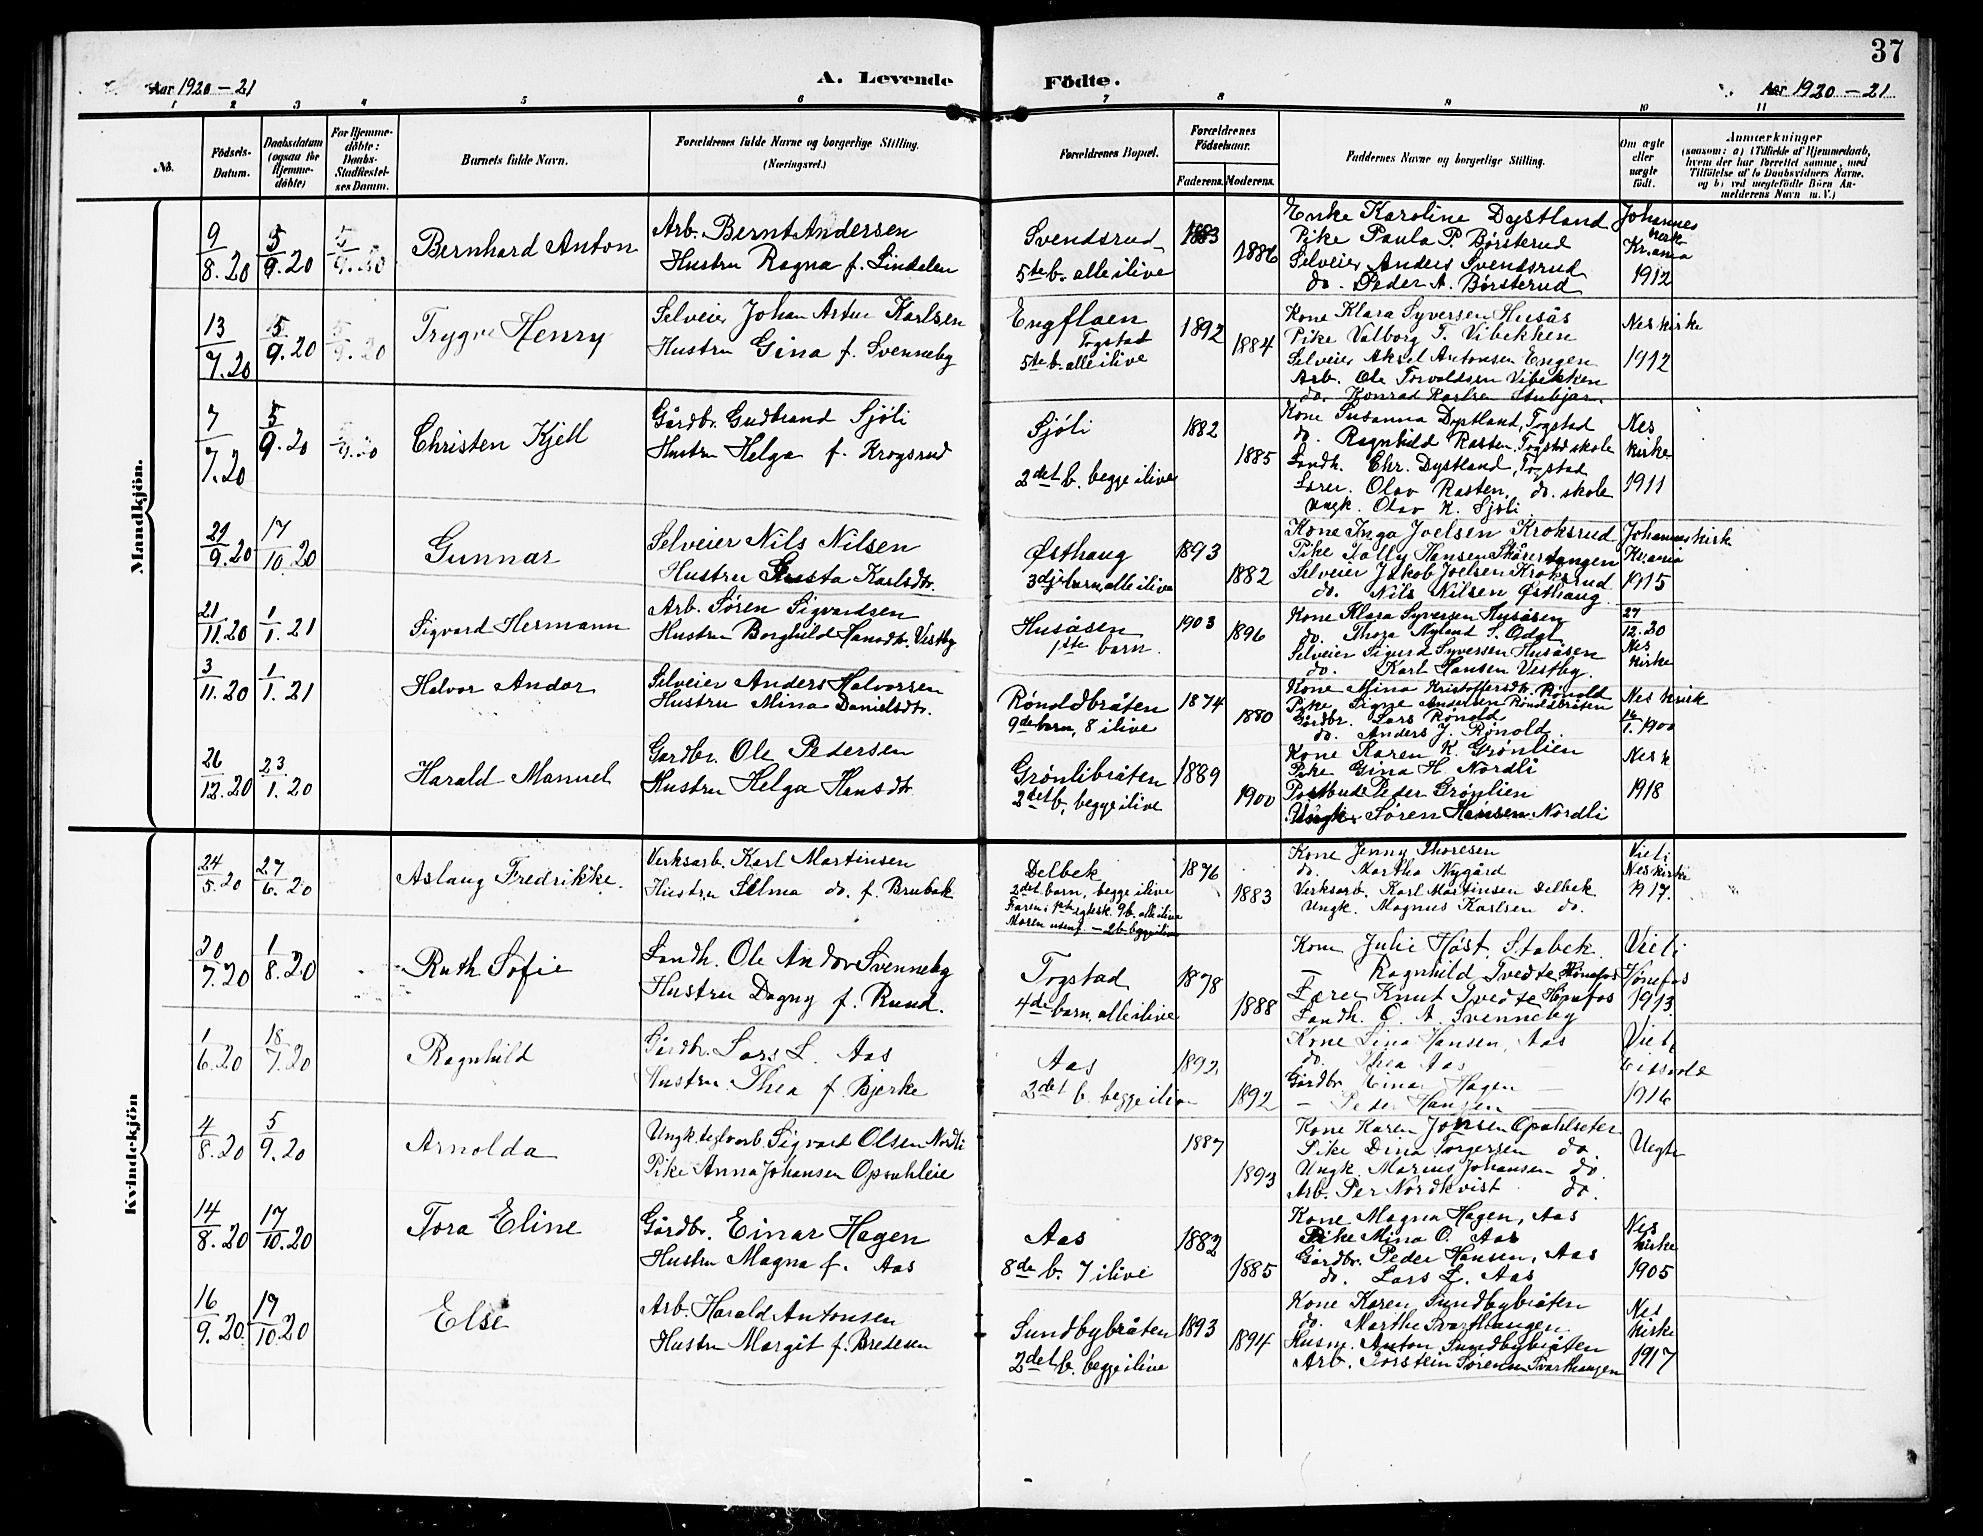 37
Aar 1920-21
A. Levende
Födte.
Aar 1920-21
1 2 3 4 5 6 7 8 9 10 11
No.
Födsels-
Datum.
Daabsdatum
(ogsaa for
Hjemme-
döbte)
For Hjemme-
döbte:
Daabs-
Stadfæstel-
ses Datum.
Barnets fulde Navn.
Forældrenes fulde Navne og borgerlige Stilling.
(Næringsvei.)
Forældrenes Bopæl.
Forældrenes
Födselsaar.
Faderens. Moderens.
Faddernes Navne og borgerlige Stilling.
Om ægte
eller
uægte
födt.
Anmærkninger
(saasom: a) i Tilfælde af Hjemmedaab,
hvem der har forrettet samme, med
Tilföielse af to Daabsvidners Navne,
og b) ved uægtefödte Börn An-
melderens Navn m.V.)
Mandkjön.
9/8.20 5/9.20 5/9.20 Bernhard Anton
Arb. Bernt Andersen
Hustru Ragna f. Lindelen
Svendsrud
5te b. alle ilive
1883 1886
Enke Karoline Dystland
Pike Paula P. Börsterud
Selveier Anders Svendsrud
do. Peder A. Börsterud
Johannes
kirk
Kr.ania
1912
13/7.20 5/9.20 5/9.20 Trygve Henry
Selveier Johan Artur Karlsen
Hustru Gina f. Svenneby
Engflaen
Togstad
5te b. alle ilive
1892 1884
Kone Klara Syversen Husås
Pike Valborg T. Vibekken
Selveier Aksel Antonsen Engen
Arb. Ole Torvaldsen Vibekken
do. Konrad Karlsen
Nes kirke
1912
7/7.20 5/9.20 5/9.20 Christen Kjell
Gårdbr. Gudbrand Sjöli
Hustru Helga f. Krogsrud
Sjöli
2det b. begge ilive
1882 1885
Kone Susanna Dystland, Togstad
do. Ragnhild Rasten, Togstad skole
Landh. Chr. Dystland, Togstad
Lærer. Olav Rasten, do. skole
Ungk. Olav K. Sjöli
Nes
kirke
1911
29/9.20 17/10.20 Gunnar
Selveier Nils Nilsen
Hustru Gusta Karlsdtr.
Østhaug
3dje barn, alle ilive
1893 1882
Kone Inga Joelsen Kroksrud
Pike Lally Hansen Skårertangen
Selveier Jakob Joelsen Kroksrud
do. Nils Nilsen Østhaug
Johanneskirk
Kr.ania
1915
21/11.20 1/1.21 Sigvard Hermann
Arb. Sören Sigvardsen
Hustru Borghild Hansdtr. Vestby
Husåsen
1ste barn.
1903 1896
Kone Klara Syversen Husåsen
do. Thora Nyland S. Odal
Selveier Sigurd Syversen Husåsen
do. Karl Hansen Vestby.
27/12.20
Nes
kirke
3/11.20 1/1.21 Halvor Andor
Selveier Anders Halvorsen
Hustru Mina Danielsdtr.
Rönoldbråten
9de barn, 8 ilive
1874 1880
Kone Mina Kristoffersdtr. Rönold
Pike Signe Andersen Rönoldbråten
Gårdbr. Lars Rönold
do. Anders J. Rönold.
Nes kirk
1900
26/12.20 23/1.20 Harald Manuel
Gardbr. Ole Pedersen
Hustru Helga Hansdtr
Grönlibråten
2det b. begge ilive
1889 1900
Kone Karen K. Grönlien
Pike Gina H. Nordli
Postbud Peder Grönlien
Ungk. Sören Hansen Nordli
Nes k
1918
Kvindekjön
24/5.20 27/6.20 Aslaug Fredrikke.
Verksarb. Karl Martinsen
Hustru Selma do. f. Brubak
Delbek
2det barn, begge ilive
Faren i 1ste egtesk. 9 b. alle ilive
Moren utenf. - 2 b. begge ilive
1876 1883
Kone Jenny Thoresen
do. Martha Nygård
Verksarb. Karl Martinsen Delbek
Ungk. Magnus Karlsen do.
Viet i
Nes kirke
1917.
20/7.20 1/8.20 Ruth Sofie
Landh. Ole Andor Svenneby
Hustru Dagny f. Rund.
Togstad
4de barn, alle ilive
1878 1888
Kone Julie Höst, Stabek.
— Ragnhild Tvedte Hönefos
Lærer Knut Tvedte Hönefos
Landh. O. A. Svenneby
Viet i
Hönefos
1913.
1/6.20 18/7.20 Ragnhild
Gårdbr. Lars L. Aas
Hustru Thea f. Bjerke
Aas
2det b. begge ilive
1892 1892
Kone Lina Hansen, Aas
do. Thea Aas —
Gårdbr. Einar Hagen —
— Peder Hansen —
Viet i
Eidsvold
1916
4/8.20 5/9.20 Arnolda
Ungk. teglarb. Sigvard Olsen Nordli
Pike Anna Johansen Opsahleie
1887 1893
Kone Karen Jonsen Opahlseter
Pike Dina Torgersen do.
Ungk. Marius Johansen do.
Arb. Per Nordkvist do.
Uegte
14/8.20 17/10.20 Tora Eline
Gårdbr. Einar Hagen
Hustru Magna f. Aas
Aas
8de b. 7 ilive
1882 1885
Kone Magna Hagen, Aas
Pike Mina O. Aas
Gårdbr. Peder Hansen, Aas
do. Lars L. Aas
Nes
kirke
1905
16/9.20. 17/10.20 Else
Arb. Harald Antonsen
Hustru Margit f. Bredesen
Sundbybråten
2det b. begge ilive
1893 1894
Kone Karen Sundbybråten
do. Marthe Svarthaugen
Husm. Anton Sundbybråten
Arb. Torstein Sörensen Svarthaugen
Nes
kirke
1917